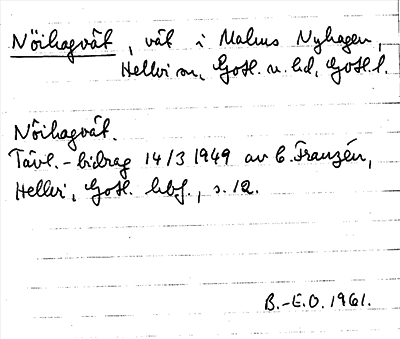 Nöihagvät, vät i Malms Nyhagen,
Hellvi sn, Gotl. n. hd, Gotl. l.
Nöihagvät.
Tävl.-bidrag 14/3 1949 av C. Franzén,
Hellvi, Gotl. hbf., s. 12.
B.-E.O. 1961.